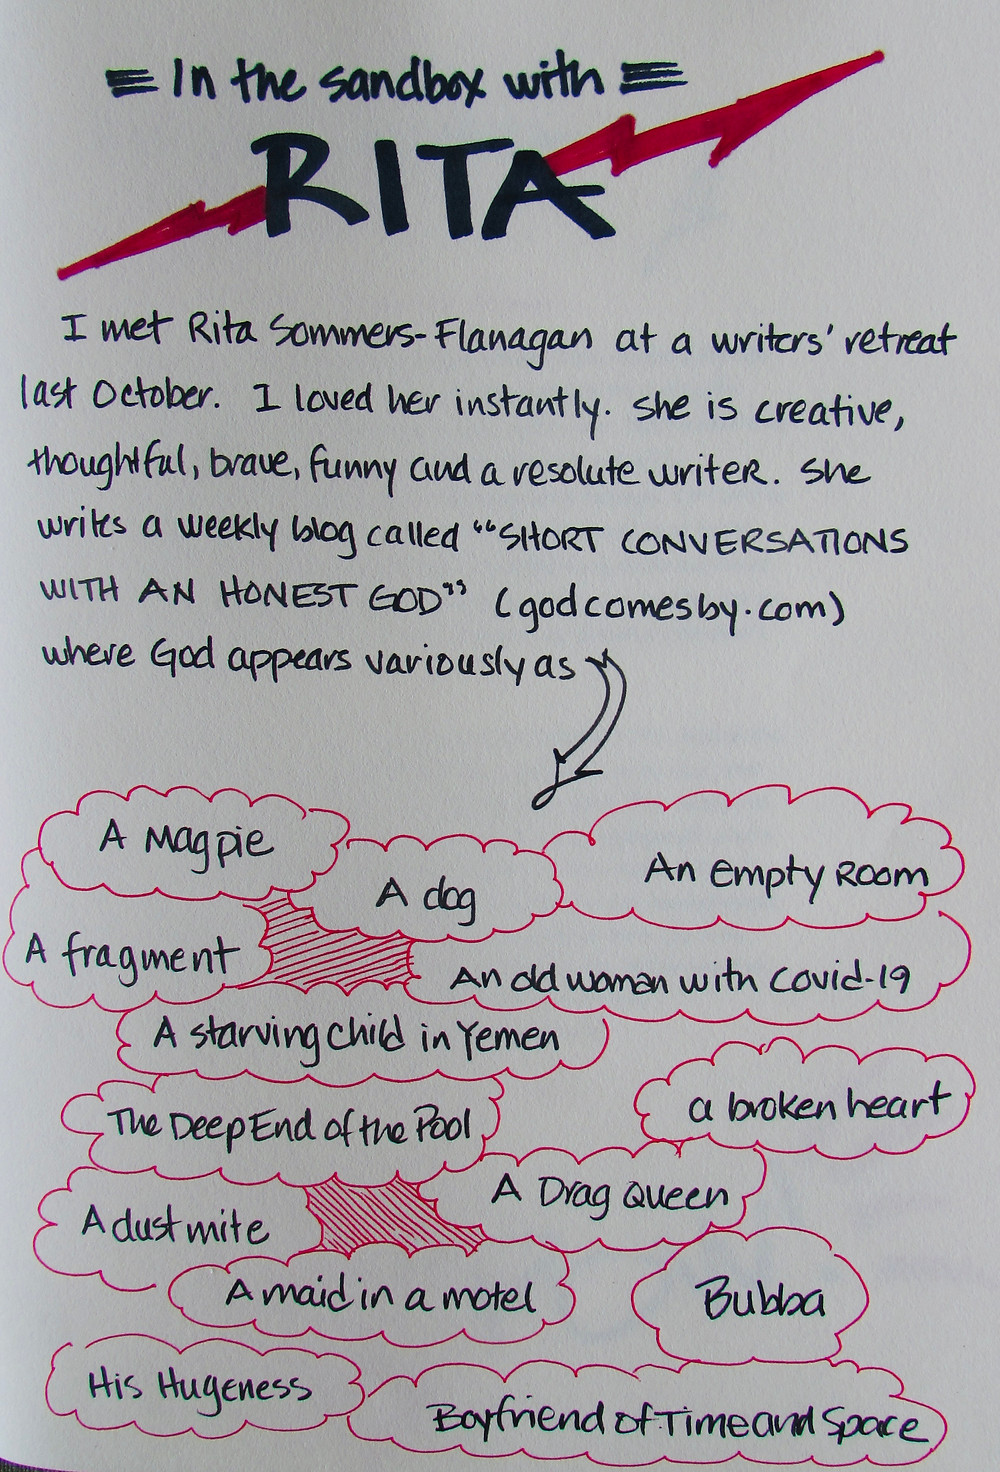 In the sandbox with
RITA
I met Rita Sommers-Flanagan at a writers' retreat
last October. I loved her instantly. She is creative,
thoughtful, brave, funny and a resolute writer. She
writes a weekly blog called "SHORT CONVERSATIONS
WITH AN HONEST GOD" (godcomesby.com)
where God appears variously as
A Magpie
A dog
An empty Room
A fragment
An old woman with Covid-19
A starving child in Yemen
The Deep End of the Pool
a broken heart
A Drag Queen
A dust mite
A maid in a motel
Bubba
His Hugeness
Boyfriend of Time and Space